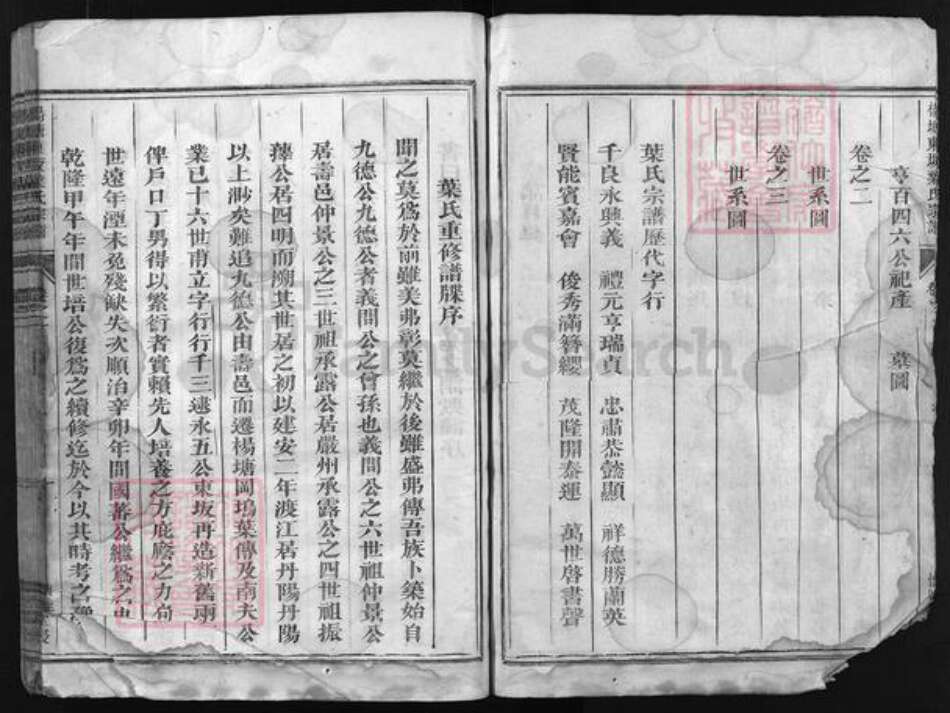 亨百四六公祀產 墓圖
卷之二
世系圖
卷之三
世系圖
葉氏宗譜歷代字行
千良永興義 禮元亨瑞貞 忠肅恭懿顯 祥德勝蘭英
賢能賓嘉會 俊秀滿簪纓 茂隆開泰運 萬世啓書聲
葉氏重修譜牒序
聞之莫爲於前雖美弗彰莫繼於後雖盛弗傳吾族卜築始自
九德公九德公者義問公之曾孫也義問公之六世祖仲景公
居壽邑仲景公之三世祖承露公居嚴州承露公之四世祖振
公居四明而溯其世居之初以建安二年渡江居丹陽丹陽
以上渺矣難追九德公由壽邑而遷楊塘岡塢葉傳及南夫公
業已十六世甫立字行行千三逮永五公東坂再造新舊兩
俾戶口丁男得以繁衍者實賴先人培養之方庇廕之力
世遠年湮未免殘缺失次順治辛卯年間國蕃公繼爲之
乾隆甲午年間世培公復爲之續修迄於今以其時考之
FamilySearch